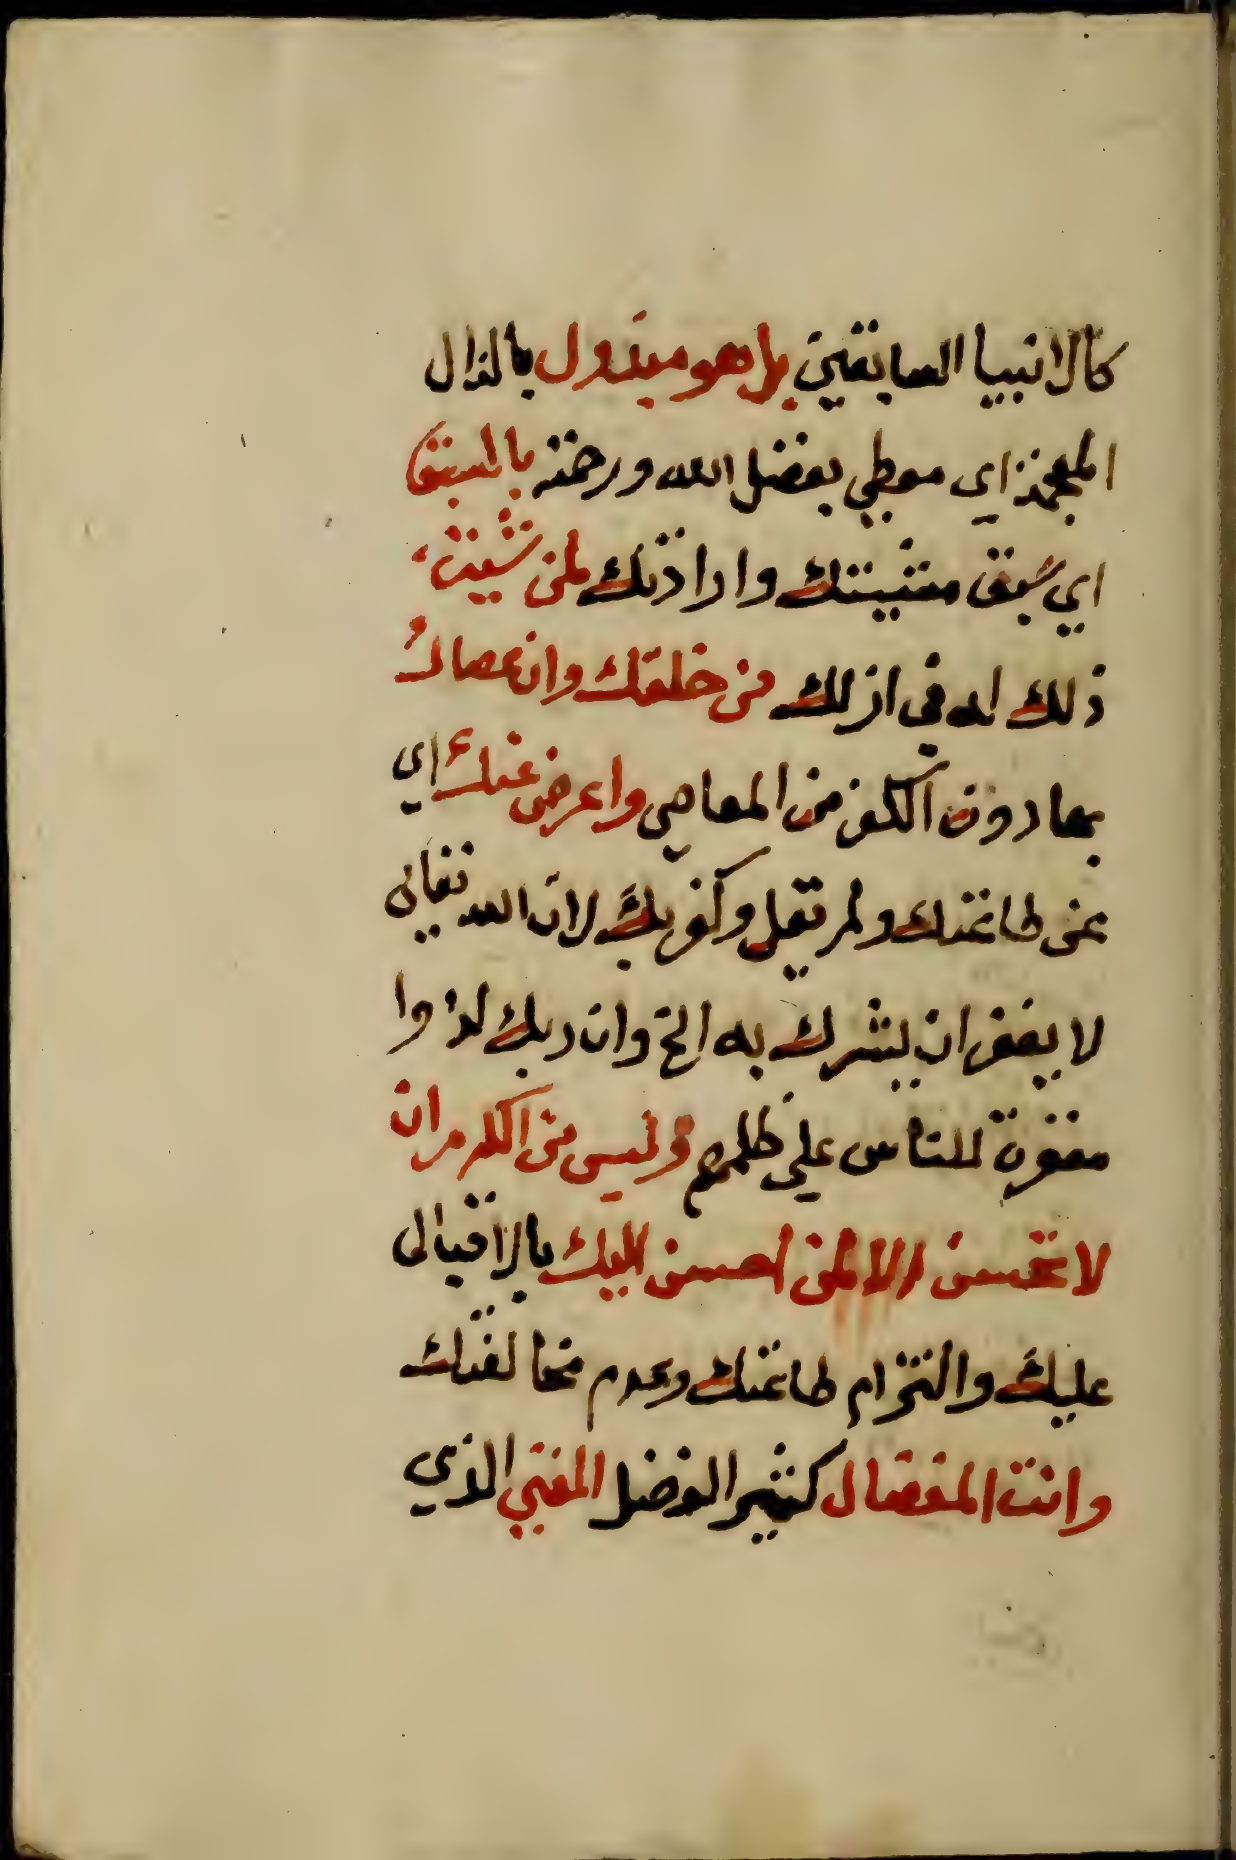 كالانبيا السابقين بل هو مبذول بالذال
المعجمة اي معطي بفضل الله ورحمته بالسبق
اي سبق مشيئتك وارادتك لمن شيت
ذلك له في ازلك من خلقك وان عصاك
بما دون الكفر من المعاصي واعرض عنك اي
عن طاعتك ولم يقل وكفر بك لان الله تعالى
لا يغفر ان يشرك به الخ وان ربك لذوا
مغفرة للناس علي ظلمهم وليس من الكرم ان
لا تحسن الا لمن احسن اليك بالاقبال
عليك والتزام طاعتك وعدم مخالفتك
وانت المفضال كثير الفضل الغني الذي